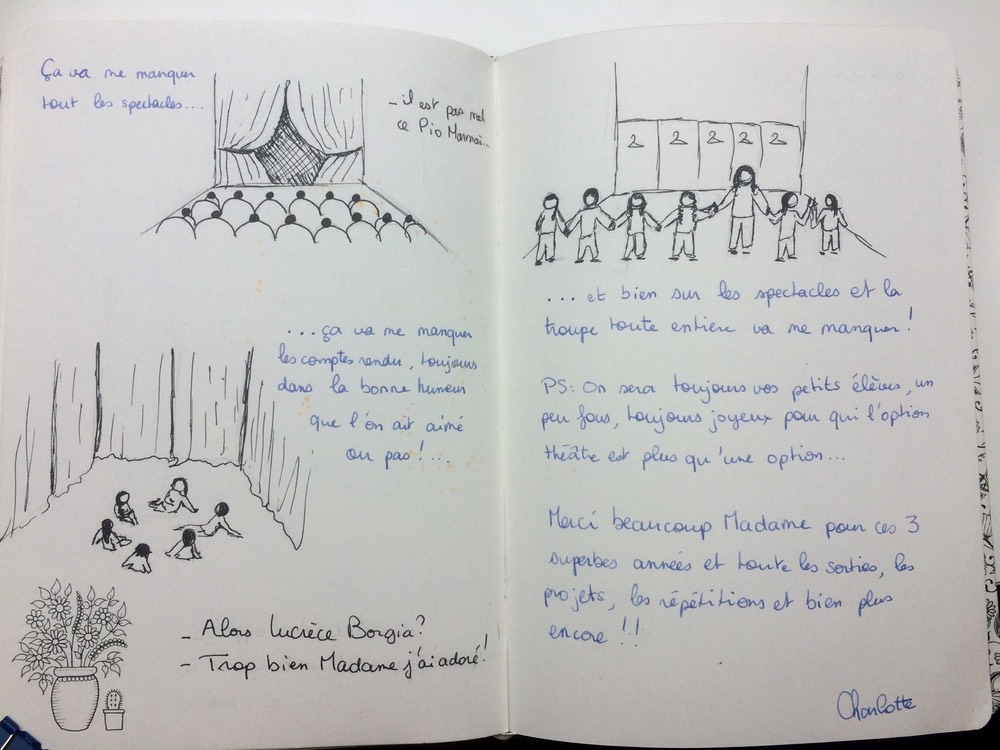 Ça va me manquer
tout les spectacles...
- il est pas mal
ce Pio Marmai...
...ça va me manquer
les comptes rendu, toujours
dans la bonne humeur
que l'on ait aimé
ou pas !...
- Alors Lucrèce Borgia?
- Trop bien Madame j'ai adoré!
2 2 2 2 2
... et bien sur les spectacles et la
troupe toute entière va me manquer !
PS: On sera toujours vos petits élèves, un
peu fous, toujours joyeux pour qui l'option
théâtre est plus qu'une option...
Merci beaucoup Madame pour ces 3
superbes années et toute les sorties, les
projets, les répétitions et bien plus
encore !!
Charlotte